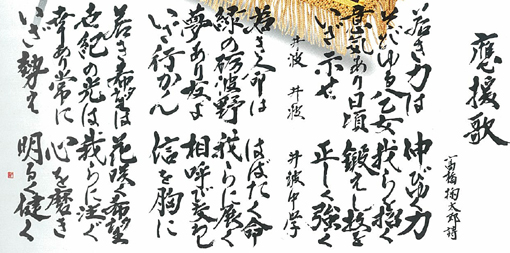 應援歌
高橋掬太郎詩
若き力は 伸びゆく力
そびゆる乙女 我らを招く
意気あり日頃 鍛えし技を
いざ示せ 正しく強く
井波 井波 井波中学
若き命は はばたく命
緑の砺波野 我らに広く
夢あり友よ 相呼び交わし
いざ行かん 信を胸に
若き希望は 花咲く希望
世紀の光は 我らに注ぐ
幸あり常に 心を磨き
いざ 明るく健く